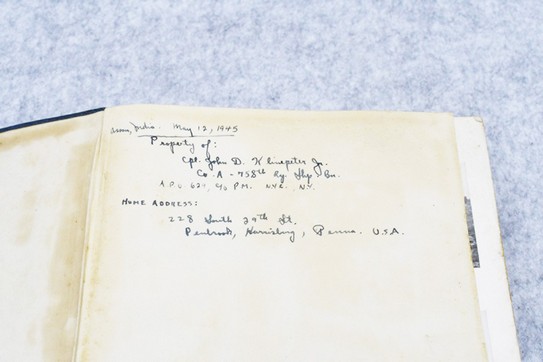 Assam, India. May 12, 1945
Property of:
Cpl. John D. Klinepeter Jr.
Co. A - 758th Ry. Shp. Bn.
A.P.O. 629, c/o P.M. N.Y.C. N.Y.
HOME ADDRESS:
228 South 29th St.
Penbrook, Harrisburg, Penna. U.S.A.